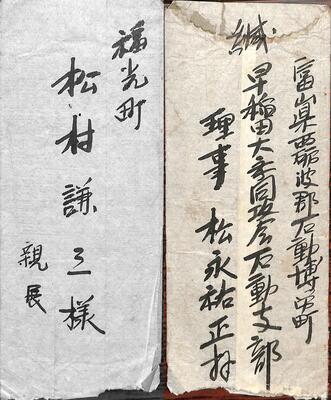 福光町
松村謙三様
親展
富山県西礪波郡石動博労町
緘
早稲田大学同攻会石動支部
理事 松永祐正拝